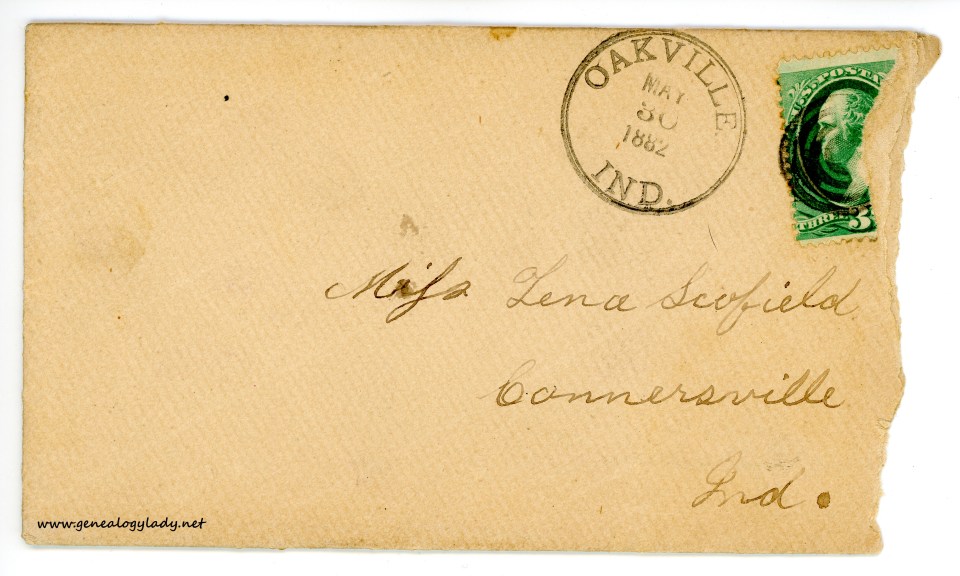 OAKVILLE.
MAY
30
1882
IND.
U.S. POSTA
THREE 3
Miss Lena Scofield
Connersville
Ind.
www.genealogylady.net